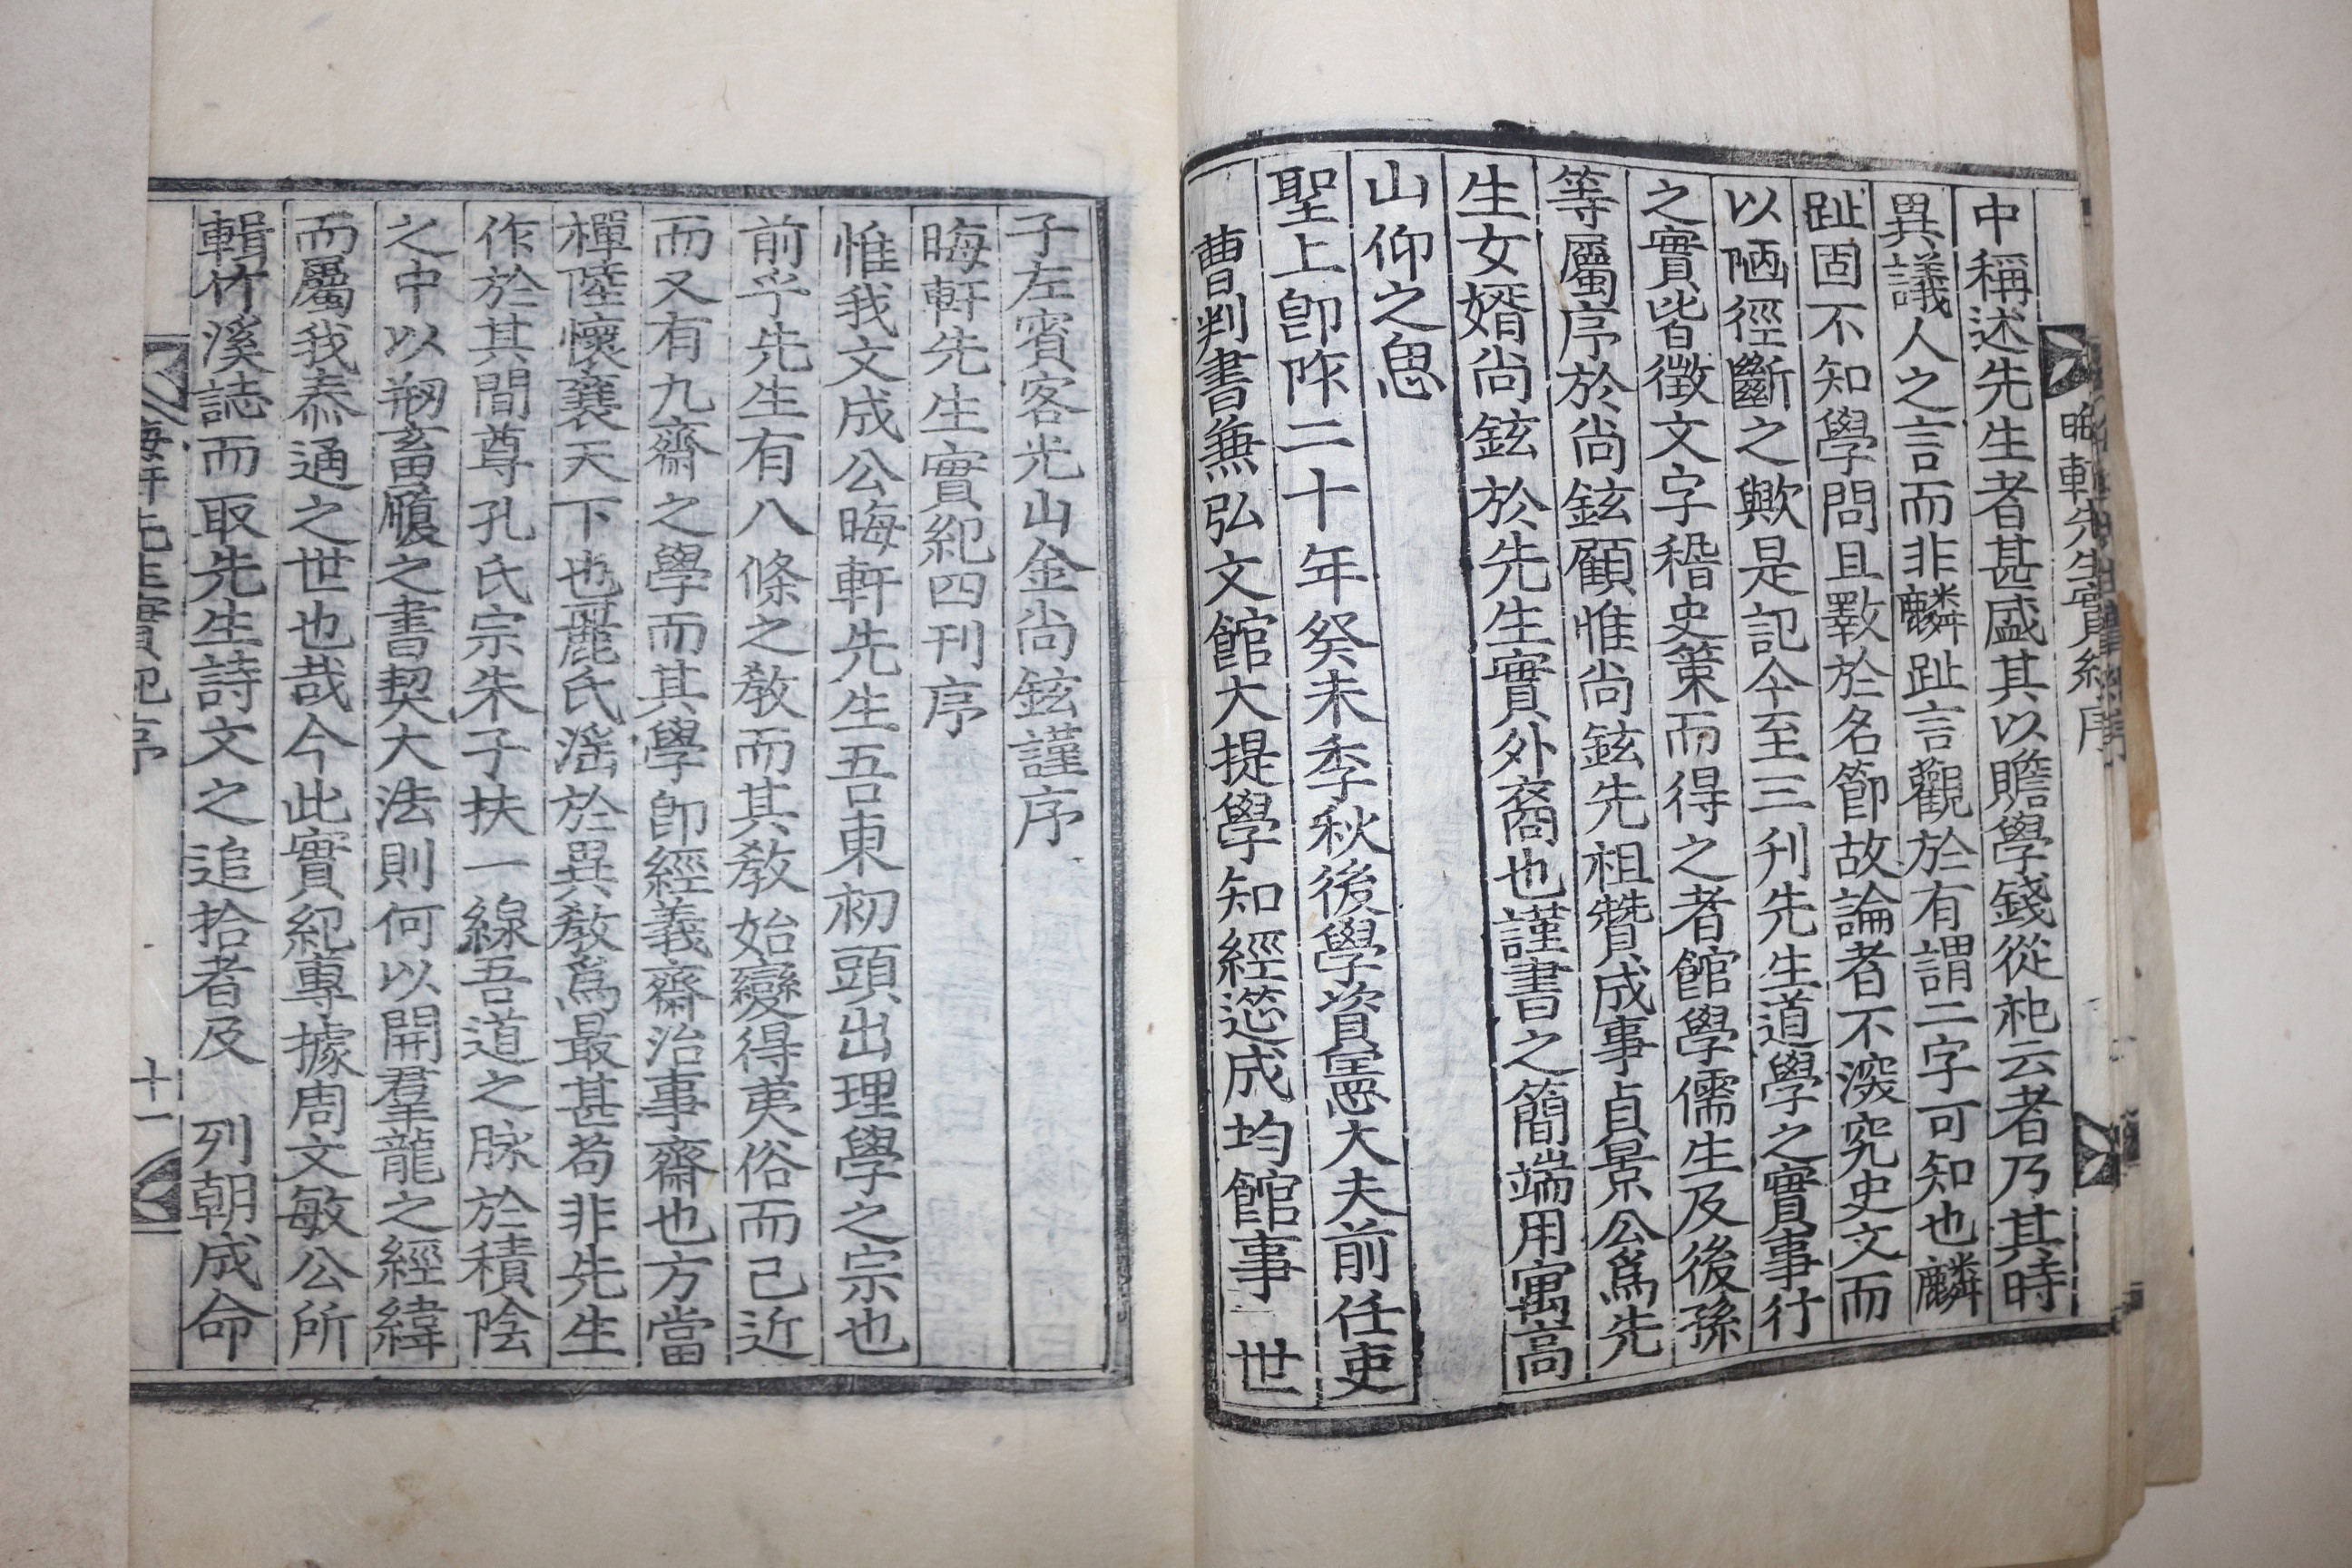 晦軒先生實紀序
中稱述先生者甚盛其以贍學錢從祀云者乃其時
異議人之言而非麟趾言觀於有謂二字可知也麟
趾固不知學問且斁於名節故論者不深究史文而
以陋徑斷之歟是記今至三刋先生道學之實事行
之實皆徵文字稽史策而得之者館學儒生及後孫
等屬序於尙鉉顧惟尙鉉先祖贊成事貞景公爲先
生女婿尙鉉於先生實外裔也謹書之簡端用寓高
山仰之思
聖上卽阼二十年癸未季秋後學資憲大夫前任吏
曹判書兼弘文館大提學知經筵成均館事 世
子左賓客光山金尙鉉謹序
晦軒先生實紀四刊序
惟我文成公晦軒先生吾東初頭出理學之宗也
前乎先生有八條之敎而其敎始變得夷俗而已近
而又有九齋之學而其學卽經義齋治事齋也方當
樿陸懷襄天下也麗氏滛於異敎爲最甚苟非先生
作於其間尊孔氏宗朱子扶一線吾道之脉於積陰
之中以剏畜贗之書契大法則何以開羣龍之經緯
而屬我泰通之世也哉今此實紀專據周文敏公所
輯竹溪誌而取先生詩文之追拾者及 列朝成命
晦軒先生實紀序 十一